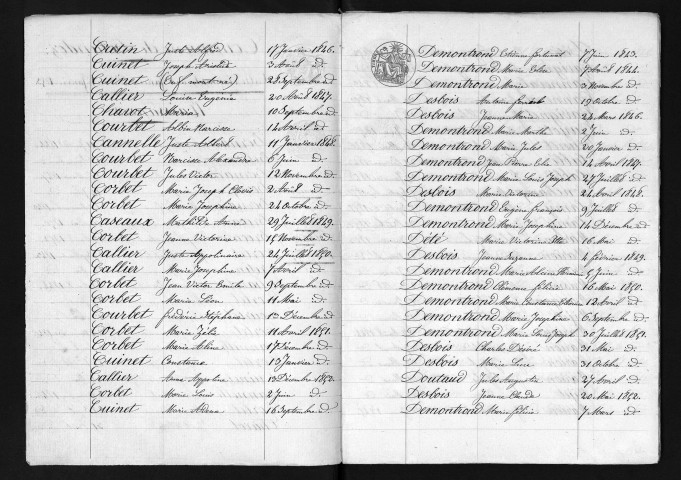 Justin Alfred 17 Janvier 1846.
Cuinet Joseph 3 Avril id.
Cuinet 28 Septembre id
Callier Louise Eugénie 20 Août 1847.
Charot Maria 10 Septembre id
Courbet Albin Narcisse 12 Avril id.
Cannelle Juste Albert 11 Janvier 1848.
Courbet Narcisse Alexandre 6 Juin id.
Courbet Jules Victor 12 Novembre id
Corbet Marie Joseph Clovis 2 Août id.
Corbet Marie Joséphine 24 Octobre id.
Caseaux Mathilde 29 Juillet 1849.
Corbet Jeanne Victorine 15 Novembre id
Callier Juste Appolinaire 24 Juillet 1850.
Callier Marie Joséphine 7 Avril id.
Corbet Jean Victor Emile 9 Septembre id
Corbet Marie Léon 11 Mai id.
Courbet Frédéric Stéphane 13 Décembre id
Corbet Marie Zélie 11 Avril 1851.
Corbet Marie Aline 17 Décembre id.
Cuinet Constance 13 Janvier id.
Callier Anna Appoline 13 Décembre 1852.
Corbet Marie Louis 2 Juin id.
Cuinet Marie 16 Septembre id.
Demontrond 7 Juin 1843.
Demontrond Marie 7 Avril 1844.
Demontrond Marie 3 Novembre id
Desbois 19 Octobre id.
Desbois Jeanne Marie 24 Mars 1846.
Demontrond Marie Marthe 2 Juin id.
Demontrond Marie Jules 20 Janvier id.
Demontrond Jean Pierre 14 Avril 1847.
Demontrond Marie Louis Joseph 27 Juillet id.
Desbois Marie Victorine 24 Avril 1848.
Demontrond Eugène François 9 Juillet id.
Demontrond Marie Joséphine 14 Décembre id
Dété Marie Victorine 16 Mai id.
Desbois Jeanne Suzanne 4 février 1849.
Demontrond Marie 5 Juin id.
Demontrond Clémence 16 Mai 1850.
Demontrond Marie Constance 12 Avril id.
Demontrond Marie Joséphine 6 Septembre id.
Demontrond Marie Louis Joseph 30 Juillet 1851.
Desbois Charles Désiré 31 Mai id.
Desbois Marie 31 Octobre id.
Doutaud Jules Auguste 27 Avril id.
Desbois Jeanne Claude 20 Mai 1852.
Demontrond Marie 7 Mars id